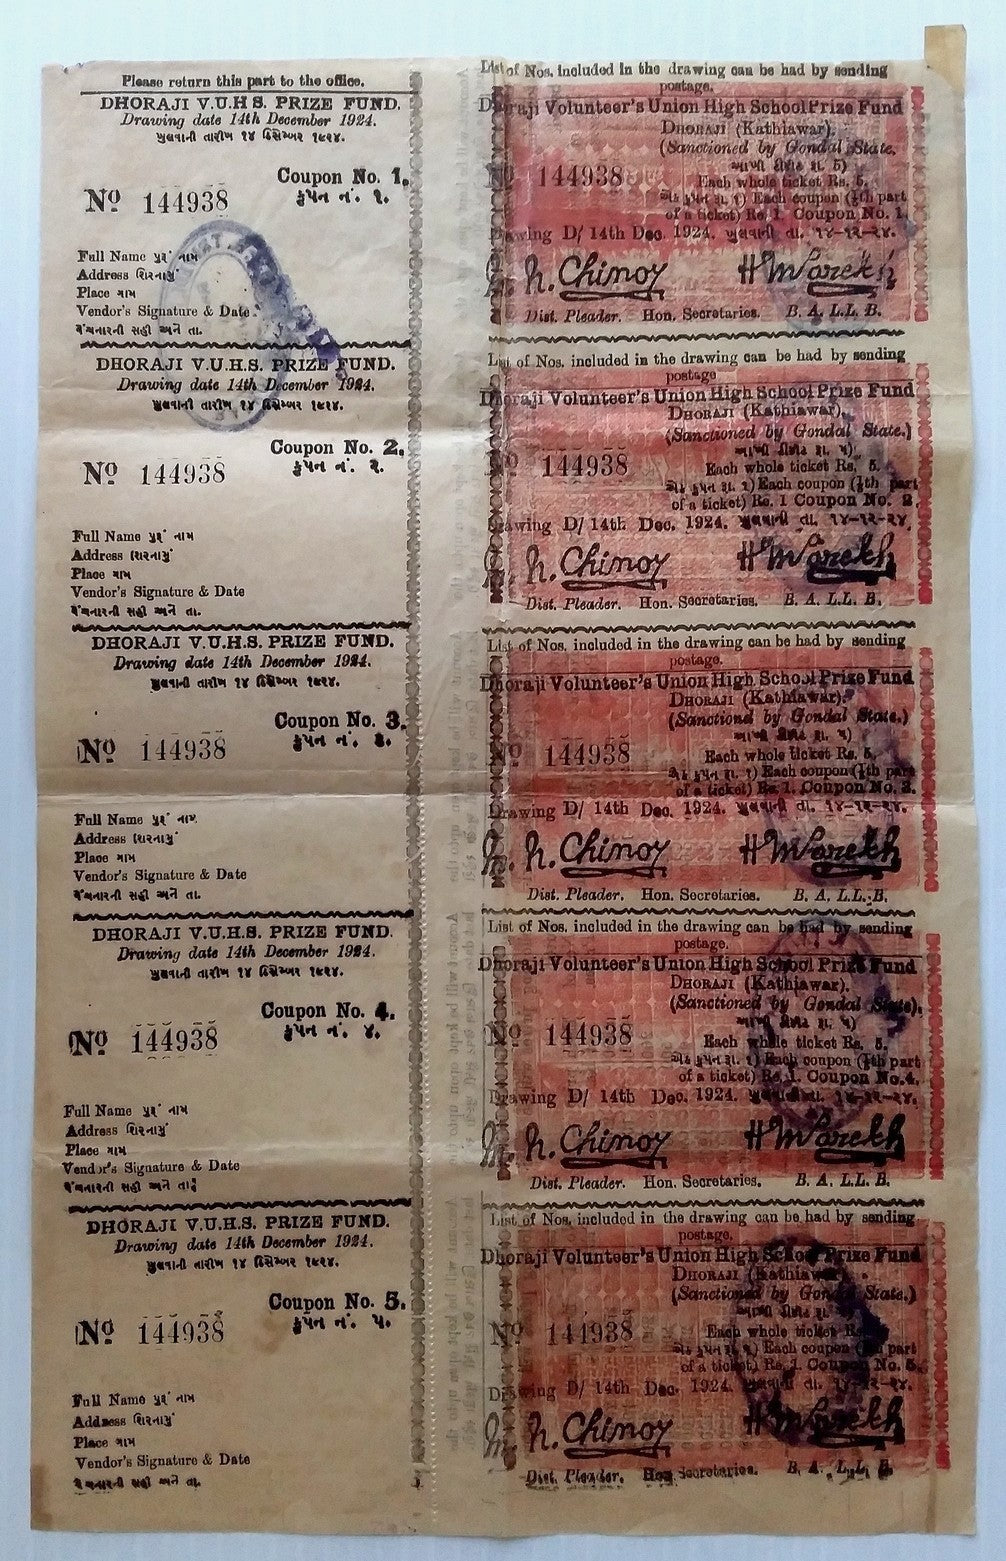 Please return this part to the office.
DHORAJI V.U.H S. PRIZE FUND.
Drawing date 14th December 1924.
ખુલવાની તારીખ ૧૪ ડિસેમ્બર ૧૯૨૪.
Coupon No. 1.
કુપન નં. ૧.
No 144938
Full Name પુરૂં નામ
Address શિરનામું
Place ગામ
Vendor's Signature & Date.
વેંચનારની સહી અને તા.
List of Nos. included in the drawing can be had by sending
postage.
Dhoraji Volunteer's Union High School Prize Fund
DHORAJI (Kathiawar).
(Sanctioned by Gondal State.
આખી ટીકીટ રૂા. ૫)
No 144938
Each whole ticket Rs. 5.
એક કુપન રૂા. ૧) Each coupon (⅕th part
of a ticket) Rs. 1. Coupon No. 1.
Drawing D/ 14th Dec. 1924. ખુલવાની તા. ૧૪-૧૨-૨૪.
N. Chinoy H M Parekh
Dist. Pleader. Hon. Secretaries. B. A. LL. B.
DHORAJI V.U.H.S. PRIZE FUND.
Drawing date 14th December 1924.
ખુલવાની તારીખ ૧૪ ડિસેમ્બર ૧૯૨૪.
Coupon No. 2.
કુપન નં. ૨.
No 144938
Full Name પુરૂં નામ
Address શિરનામું
Place ગામ
Vendor's Signature & Date
વેંચનારની સહી અને તા.
List of Nos. included in the drawing can be had by sending
postage
Dhoraji Volunteer's Union High School Prize Fund
DHORAJI (Kathiawar).
(Sanctioned by Gondal State.)
આખી ટીકીટ રૂા. ૫)
No 144938
Each whole ticket Rs, 5.
એક કુપન રૂા. ૧) Each coupon (⅕th part
of a ticket) Rs. 1 Coupon No. 2.
Drawing D/ 14th Dec. 1924. ખુલવાની તા. ૧૪-૧૨-૨૪.
N. Chinoy H M Parekh
Dist. Pleader. Hon. Secretaries. B. A. LL. B.
DHORAJI V.U.H.S. PRIZE FUND.
Drawing date 14th December 1924.
ખુલવાની તારીખ ૧૪ ડિસેમ્બર ૧૯૨૪.
Coupon No. 3.
કુપન નં. ૩.
No 144938
Full Name પુરૂં નામ
Address શિરનામું
Place ગામ
Vendor's Signature & Date
વેંચનારની સહી અને તા.
List of Nos. included in the drawing can be had by sending
postage.
Dhoraji Volunteer's Union High School Prize Fund
DHORAJI (Kathiawar).
(Sanctiond by Gondal State.)
આખી ટીકીટ રૂા. ૫)
No 144938
Each whole ticket Rs. 5.
એક કુપન રૂા. ૧) Each coupon (⅕th part
of a ticket) Rs. 1. Coupon No. 3.
Drawing D/ 14th Dec. 1924. ખુલવાની તા. ૧૪-૧૨-૨૪.
N. Chinoy H M Parekh
Dist. Pleader. Hon. Secretaries. B. A. LL. B.
DHORAJI V.U.H.S. PRIZE FUND.
Drawing date 14th December 1924.
ખુલવાની તારીખ ૧૪ ડિસેમ્બર ૧૯૨૪.
Coupon No. 4.
કુપન નં. ૪.
No 144938
Full Name પુરૂં નામ
Address શિરનામું
Place ગામ
Vendor's Signature & Date
વેંચનારની સહી અને તા
List of Nos. included in the drawing can be had by sending
postage.
Dhoraji Volunteer's Union High School Prize Fund
DHORAJI (Kathiawar).
(Sanctioned by Gondal State).
આખી ટીકીટ રૂા. ૫)
No 144938
Each whole ticket Rs. 5.
એક કુપન રૂા. ૧) Each coupon (⅕th part
of a ticket) Rs. 1. Coupon No. 4.
Drawing D/ 14th Dec. 1924. ખુલવાની તા. ૧૪-૧૨-૨૪.
N. Chinoy H M Parekh
Dist. Pleader. Hon. Secretaries. B. A. LL. B.
DHORAJI V.U.H.S. PRIZE FUND.
Drawing date 14th December 1924.
ખુલવાની તારીખ ૧૪ ડિસેમ્બર ૧૯૨૪.
Coupon No. 5.
કુપન નં. ૫.
No 144938
Full Name પુરૂં નામ
Address શિરનામું
Place ગામ
Vendor's Signature & Date
વેંચનારની સહી અને તા.
List of Nos. included in the drawing can be had by sending
postage.
Dhoraji Volunteer's Union High School Prize Fund
DHORAJI (Kathiawar).
(Sanctioned by Gondal State.)
આખી ટીકીટ રૂા. ૫)
No 144938
Each whole ticket Rs. 5.
એક કુપન રૂા. ૧) Each coupon (⅕th part
of a ticket) Rs. 1. Coupon No. 5.
Drawing D/ 14th Dec. 1924. ખુલવાની તા. ૧૪-૧૨-૨૪.
N. Chinoy H M Parekh
Dist. Pleader. Hon. Secretaries. B. A. LL. B.